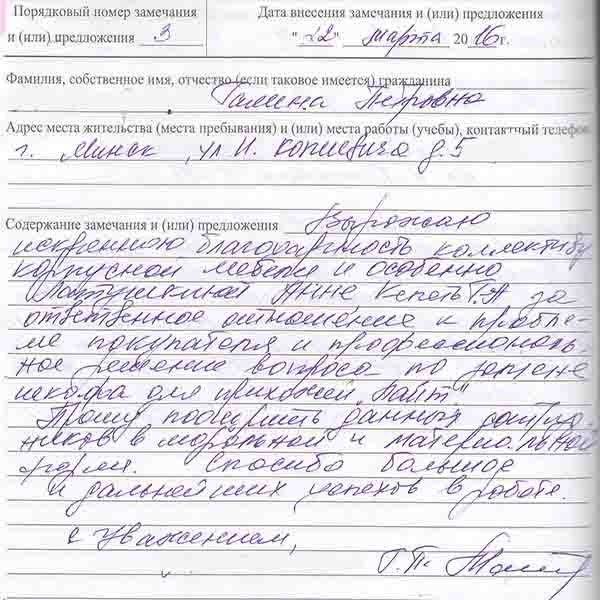 Порядковый номер замечания
и (или) предложения 3
Дата внесения замечания и (или) предложения
"22" марта 2016 г.
Фамилия, собственное имя, отчество (если таковое имеется) гражданина
Галина Петровна
Адрес места жительства (места пребывания) и (или) места работы (учебы), контактный телефон
г. Минск, ул И. д. 5
Содержание замечания и (или) предложения Выражаю
искреннюю благодарность коллективу
корпусной мебели и особенно
Анне за
ответственное отношение к пробле-
ме покупателя и профессиональ-
ное решение вопроса по замене
шкафа для прихожей "Лайт"
Прошу поощрить данных сотруд-
ников в моральной и материальной
форме. Спасибо большое
и дальнейших успехов в работе.
с уважением,
Г.П.